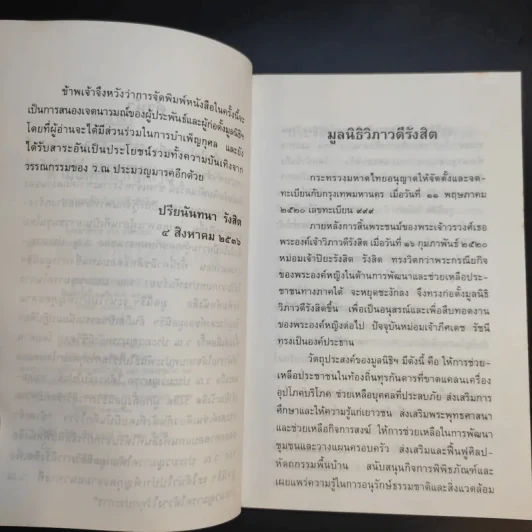 ข้าพเจ้าจึงหวังว่าการจัดพิมพ์หนังสือในครั้งนี้จะ
เป็นการสนองเจตนารมณ์ของผู้ประพันธ์และผู้ก่อตั้งมูลนิธิฯ
โดยที่ผู้อ่านจะได้มีส่วนร่วมในการบำเพ็ญกุศล และยัง
ได้รับสาระอันเป็นประโยชน์รวมทั้งความบันเทิงจาก
วรรณกรรมของ ว.ณ ประมวญมารคอีกด้วย
ปรียนันทนา รังสิต
๔ สิงหาคม ๒๕๓๖
มูลนิธิวิภาวดีรังสิต
กระทรวงมหาดไทยอนุญาตให้จัดตั้งและจด-
ทะเบียนกับกรุงเทพมหานคร เมื่อวันที่ ๑๑ พฤษภาคม
๒๕๒๐ เลขทะเบียน ๙๙๙
ภายหลังการสิ้นพระชนม์ของพระเจ้าวรวงศ์เธอ
พระองค์เจ้าวิภาวดีรังสิต เมื่อวันที่ ๑๖ กุมภาพันธ์ ๒๕๒๐
หม่อมเจ้าปิยะรังสิต รังสิต ทรงวิตกว่าพระกรณียกิจ
ของพระองค์หญิงในด้านการพัฒนาและช่วยเหลือประ-
ชาชนทางภาคใต้ จะหยุดชะงักลง จึงทรงก่อตั้งมูลนิธิ
วิภาวดีรังสิตขึ้น เพื่อเป็นอนุสรณ์และเพื่อสืบทอดงาน
ของพระองค์หญิงต่อไป ปัจจุบันหม่อมเจ้าภีศเดช รัชนี
ทรงเป็นองค์ประธาน
วัตถุประสงค์ของมูลนิธิฯ มีดังนี้ คือ ให้การช่วย-
เหลือประชาชนในท้องถิ่นทุรกันดารที่ขาดแคลนเครื่อง
อุปโภคบริโภค ช่วยเหลือบุคคลที่ประสบภัย ส่งเสริมการ
ศึกษาและให้ความรู้แก่เยาวชน ส่งเสริมพระพุทธศาสนา
และช่วยเหลือกิจการสงฆ์ ให้การช่วยเหลือในการพัฒนา
ชุมชนและวางแผนครอบครัว ส่งเสริมและฟื้นฟูศิลป-
หัตถกรรมพื้นบ้าน สนับสนุนกิจการพิพิธภัณฑ์และ
เผยแพร่ความรู้ในการอนุรักษ์ธรรมชาติและสิ่งแวดล้อม